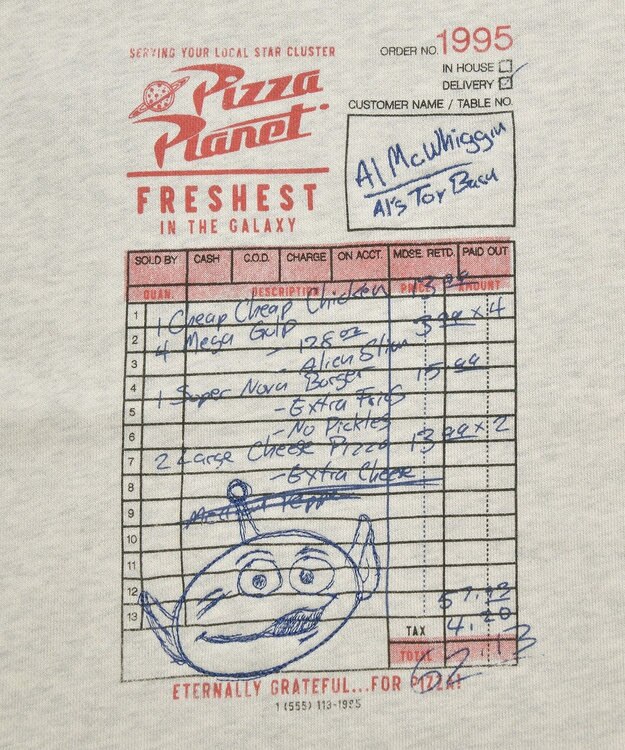 SERVING YOUR LOCAL STAR CLUSTER
Pizza
Planet
FRESHEST
IN THE GALAXY
ORDER NO. 1995
IN HOUSE
DELIVERY
CUSTOMER NAME / TABLE NO.
Al McWhiggin
Al's Toy Barn
SOLD BY CASH C.O.D. CHARGE ON ACCT. MDSE. RETD. PAID OUT
QUAN. DESCRIPTION PRICE AMOUNT
1 1 Cheap Cheap Chicken 13.99
2 4 Mega Gulp 3.99 x 4
3 - 128 oz
- Alien Slime
4 1 Super Nova Burger 15.99
5 - Extra Fries
6 - No Pickles
7 2 Large Cheese Pizza 13.99 x 2
8 - Extra Cheese
9
10
11
12 57.93
13
TAX 4.20
TOTAL 62.13
ETERNALLY GRATEFUL...FOR PIZZA!
1 (555) 113-1995